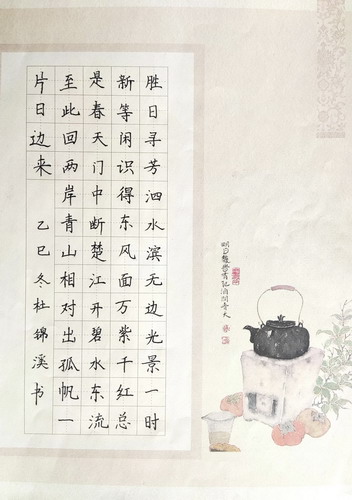 胜日寻芳泗水滨无边光景一时
新等闲识得东风面万紫千红总
是春天门中断楚江开碧水东流
至此回两岸青山相对出孤帆一
片日边来 乙巳冬杜锦溪书